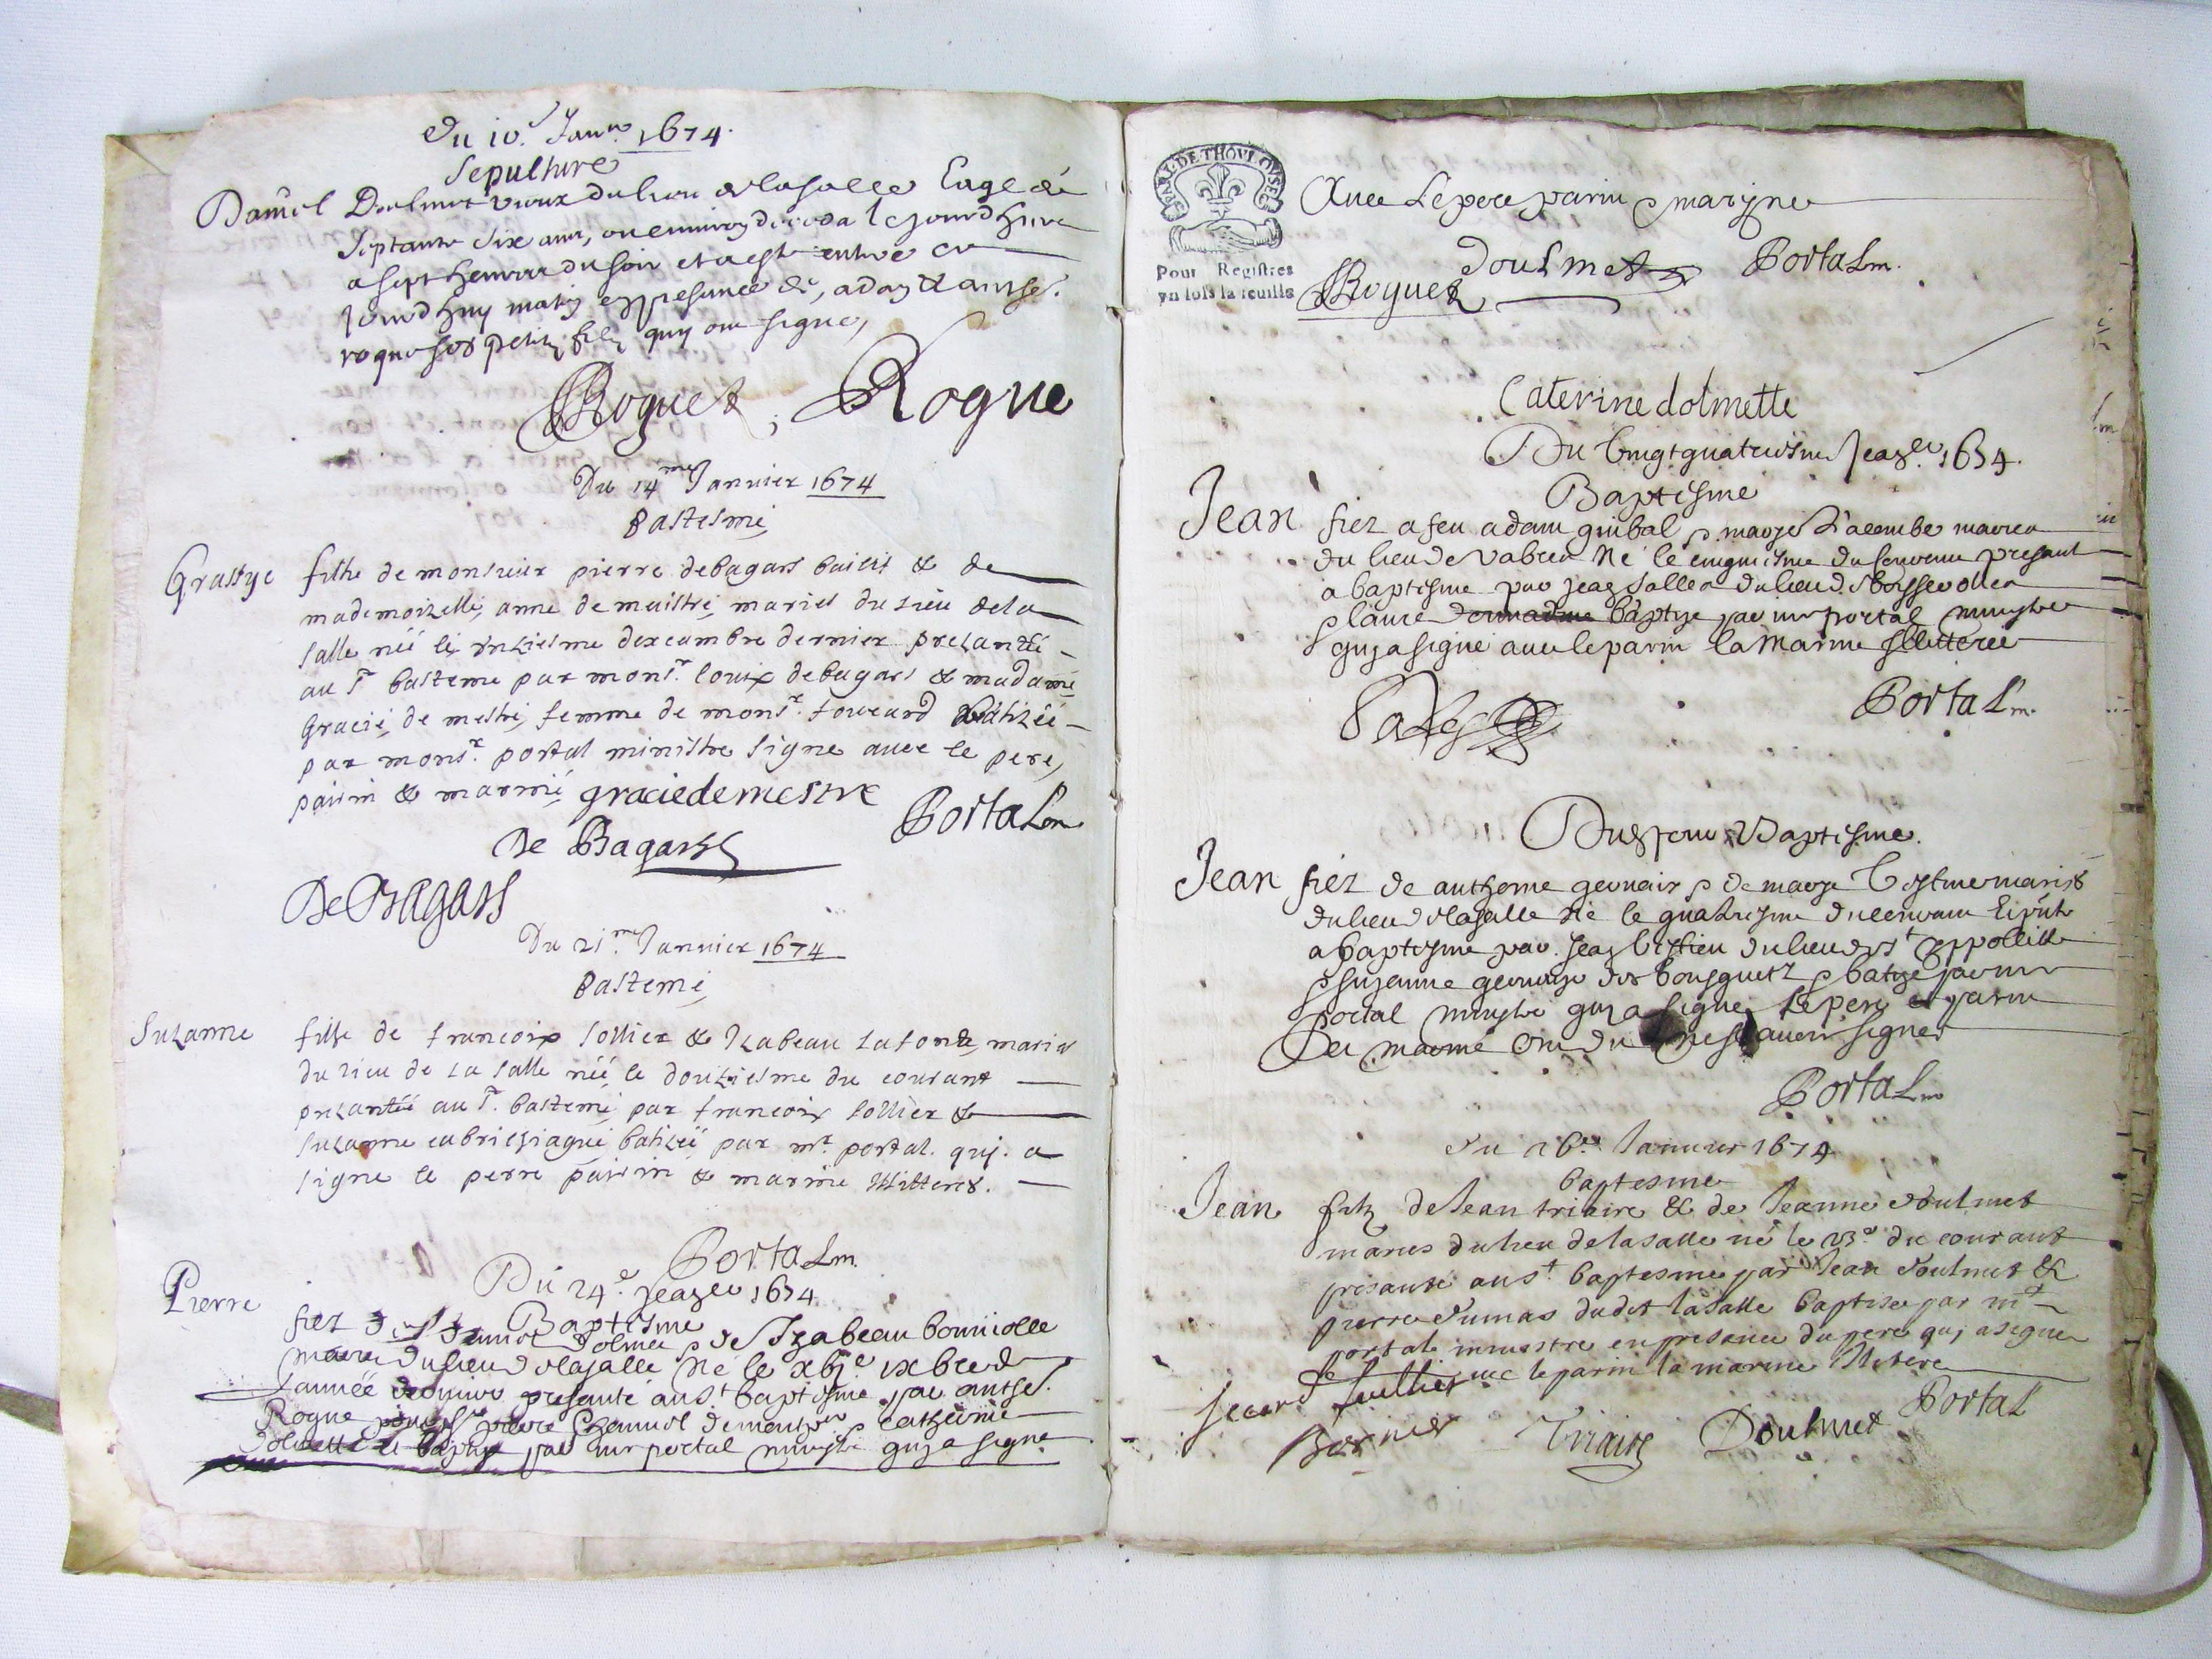 Du 10e Janer 1674.
Sepulture
Daniel Doulmet vieux du lieu de lasalle Eage de
septante six ans, ou environ deceda le jourdhier
a sept heures du soir et a este entere ce
jourdhuy matin en presance de, adan & anthe.
roque ses petitz filz quy ont signe,
Roquet, Rogue
Du 14me Janvier 1674
Bastesme
Grassye fille de monsieur pierre debagars baillif & de
mademoizelle, anne de maistre, maries du lieu dela
salle née le unziesme dexcambre dernier prezantée
au St basteme par monsr. louix debagars & madame
Gracie, de mestre, femme de monsr. soueard batizée
par monsr. portal ministre signe avec le pere,
pairin & marrine graciedemestre
Portal m
De Bagars
De Bagars
Du 21me Janvier 1674
Basteme
Suzanne fille de francoix sollier & Izabeau lafont, maries
du lieu de la salle née le douziesme du courant
prezantée au St. basteme par francoix sollier &
suzanne batizée par mr. portal. quj. a
signe le perre pairin & marrine Illitteres.
Portal m.
Du 24e Jeavier 1674
Baptisme
Pierre fiez de Izabeau bourriolle
maries du lieu de lasalle né le xbje ixbre de
l'annee derniere presanté au St baptisme par anthe.
Rogue Catherine
dolmette baptize par mr portal ministre quy a signe
MARE. DE THOVLOVSE
Pour Registres
yn sols la feuille
Avec Le pere parin & maryne
Doulmet Portal m.
Roquet
Caterine dolmette
Du vingt quatriesme Jeavier 1674.
Baptisme
Jean fiez a feu adam guibal & marye lacombe maries
du lieu de vabres Né le cinquiesme du couvrent presant
a baptisme par Jean salles du lieu de
& laure baptize par mr portal ministre
quy a signe avec le parin la Marine Illetteree
Sales
Portal m.
Dud jour Baptisme.
Jean fiez de anthoine gervaix & de marye maries
du lieu de lasalle Né le quatriesme du courant
a baptisme par Jean du lieu de St Yppolitte
& suzanne des bousquetz & batize par mr
portal ministre quy a signe Le pere & parin
La marine Ont dit ne scavoir signer
Portal m
du 26e Janvier 1674
baptesme
Jean filz de Jean triaire & de Jeanne doulmet
maries du lieu de lasalle né le 23e du courant
presanté au St. baptesme par Jean doulmet &
pierre dumas dudit lasalle baptise par mr
portal ministre en presence du pere quj a signe
avec le parin la marine Ilitere
Portal
Triaire Doulmet